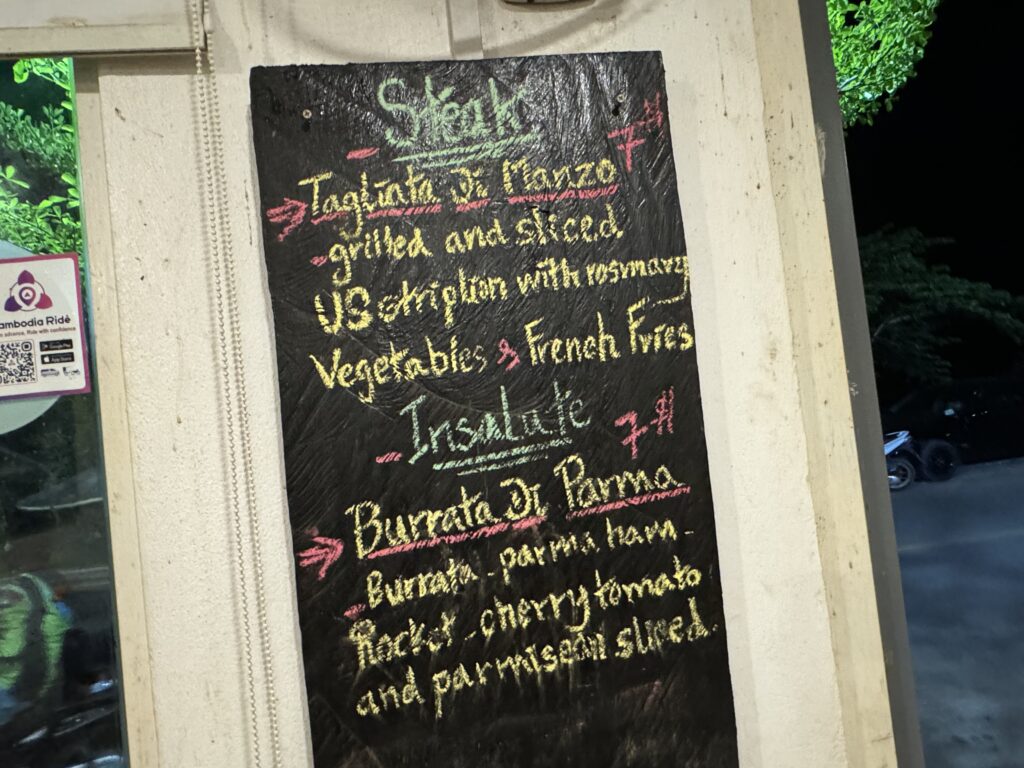 Steak
7$
Tagliata Di Manzo
-grilled and sliced
US striplion with rosvmary
Vegetables & French Fries
-Insalate
7$
Burrata Di Parma
-Burrata - parma ham -
Rocket - cherry tomato
and parmisean sliced.
ambodia Ride
advance, Ride with confidence
Google Play
App Store